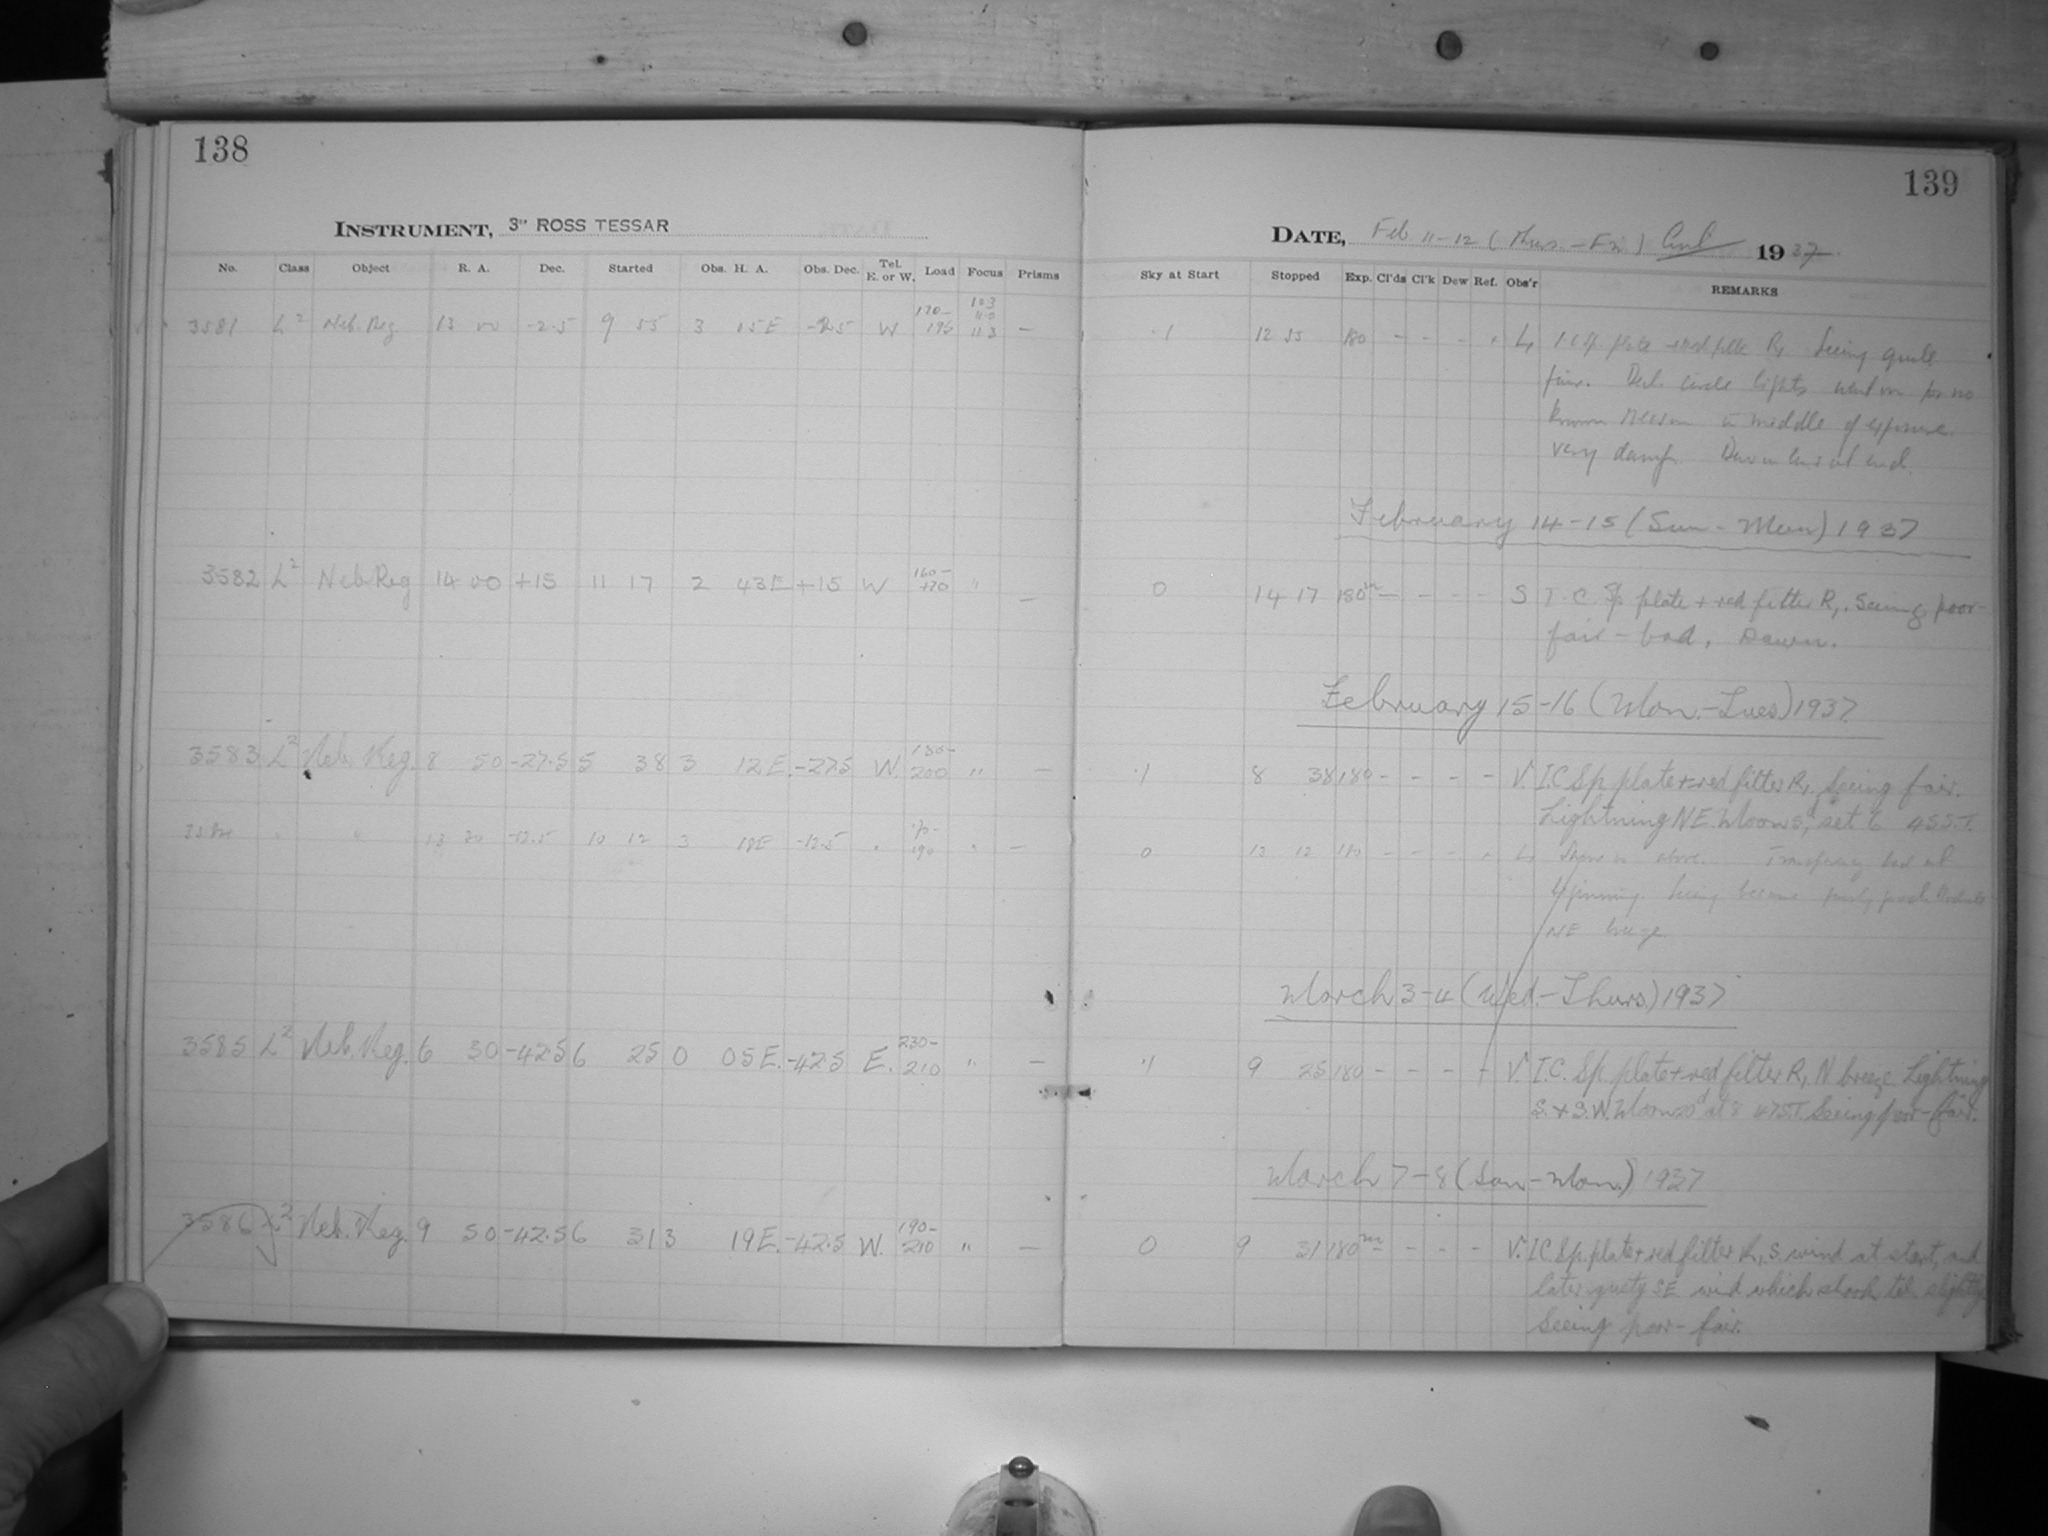 138
INSTRUMENT, 3" ROSS TESSAR
No. Class Object R. A. Dec. Started Obs. H. A. Obs. Dec. Tel. E. or W. Load Focus Prisms
3581 L² Neb. Reg 13 00 -2.5 9 55 3 15E -2.5 W 170-195 103 110 113 —
3582 L² Neb Reg 14 00 +15 11 17 2 43E +15 W 160-170 " —
3583 L² Neb. Reg. 8 50 -27.5 5 38 3 12E. -27.5 W. 180-200 " —
3584 " " 13 30 -12.5 10 12 3 18E -12.5 " 190 " —
3585 L² Neb. Reg. 6 30 -42.5 6 25 0 05E. -42.5 E. 230-210 " —
3586 L² Neb. Reg. 9 50 -42.5 6 31 3 19E. -42.5 W. 190-210 " —
139
DATE, Feb 11-12 (Thurs. - Fri) 1937
Sky at Start Stopped Exp. Cl'ds Cl'k Dew Ref. Obs'r REMARKS
.1 12 55 180 - - - I C Sp. plate + red filter R₁ Seeing quite
fair. Decl. circle lights went on for no
known reason in middle of exposure.
very damp. Dew on lens at end.
February 14-15 (Sun - Mon) 1937
0 14 17 180ᵐ - - - - S I. C. Sp plate + red filter R₁. Seeing poor-
fair - bad. Dawn.
February 15-16 (Mon.-Tues) 1937
.1 8 38 180 - - - - V. I.C Sp. plate + red filter R₁. Seeing fair.
Lightning NE. Moon 5ᵈ, set 6 45 S.T.
0 13 12 180 - - - Same as above. Transparency bad at
beginning. Seeing became
NE breeze
March 3-4 (Wed.-Thurs.) 1937
.1 9 25 180 - - - - V. I.C. Sp. plate + red filter R₁ N breeze. Lightning
S. + S.W. Moon 20ᵈ at 8 47 S.T. Seeing poor - fair.
March 7-8 (Sun-Mon.) 1937
0 9 31 180ᵐ - - - - V. I C Sp. plate + red filter R₁, S. wind at start, and
later gusty SE wind which shook tel. slightly
Seeing poor - fair.